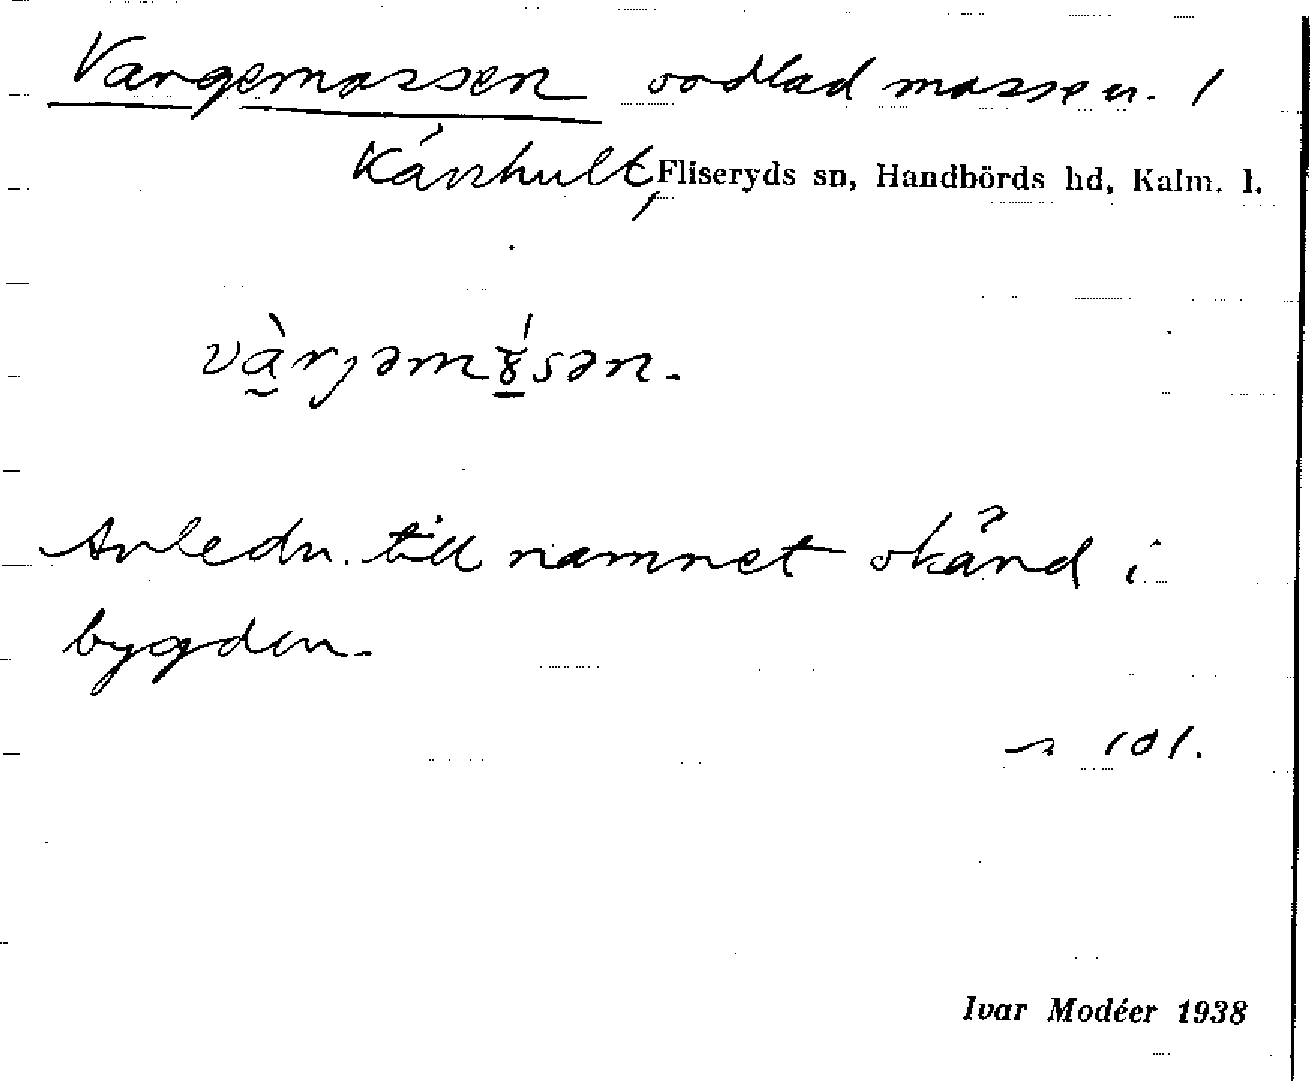 Vargemossen oodlad mosse u. /
Kånhult, Fliseryds sn, Handbörds hd, Kalm. l.
Anledn. till namnet okänd i
bygden.
101.
Ivar Modéer 1938